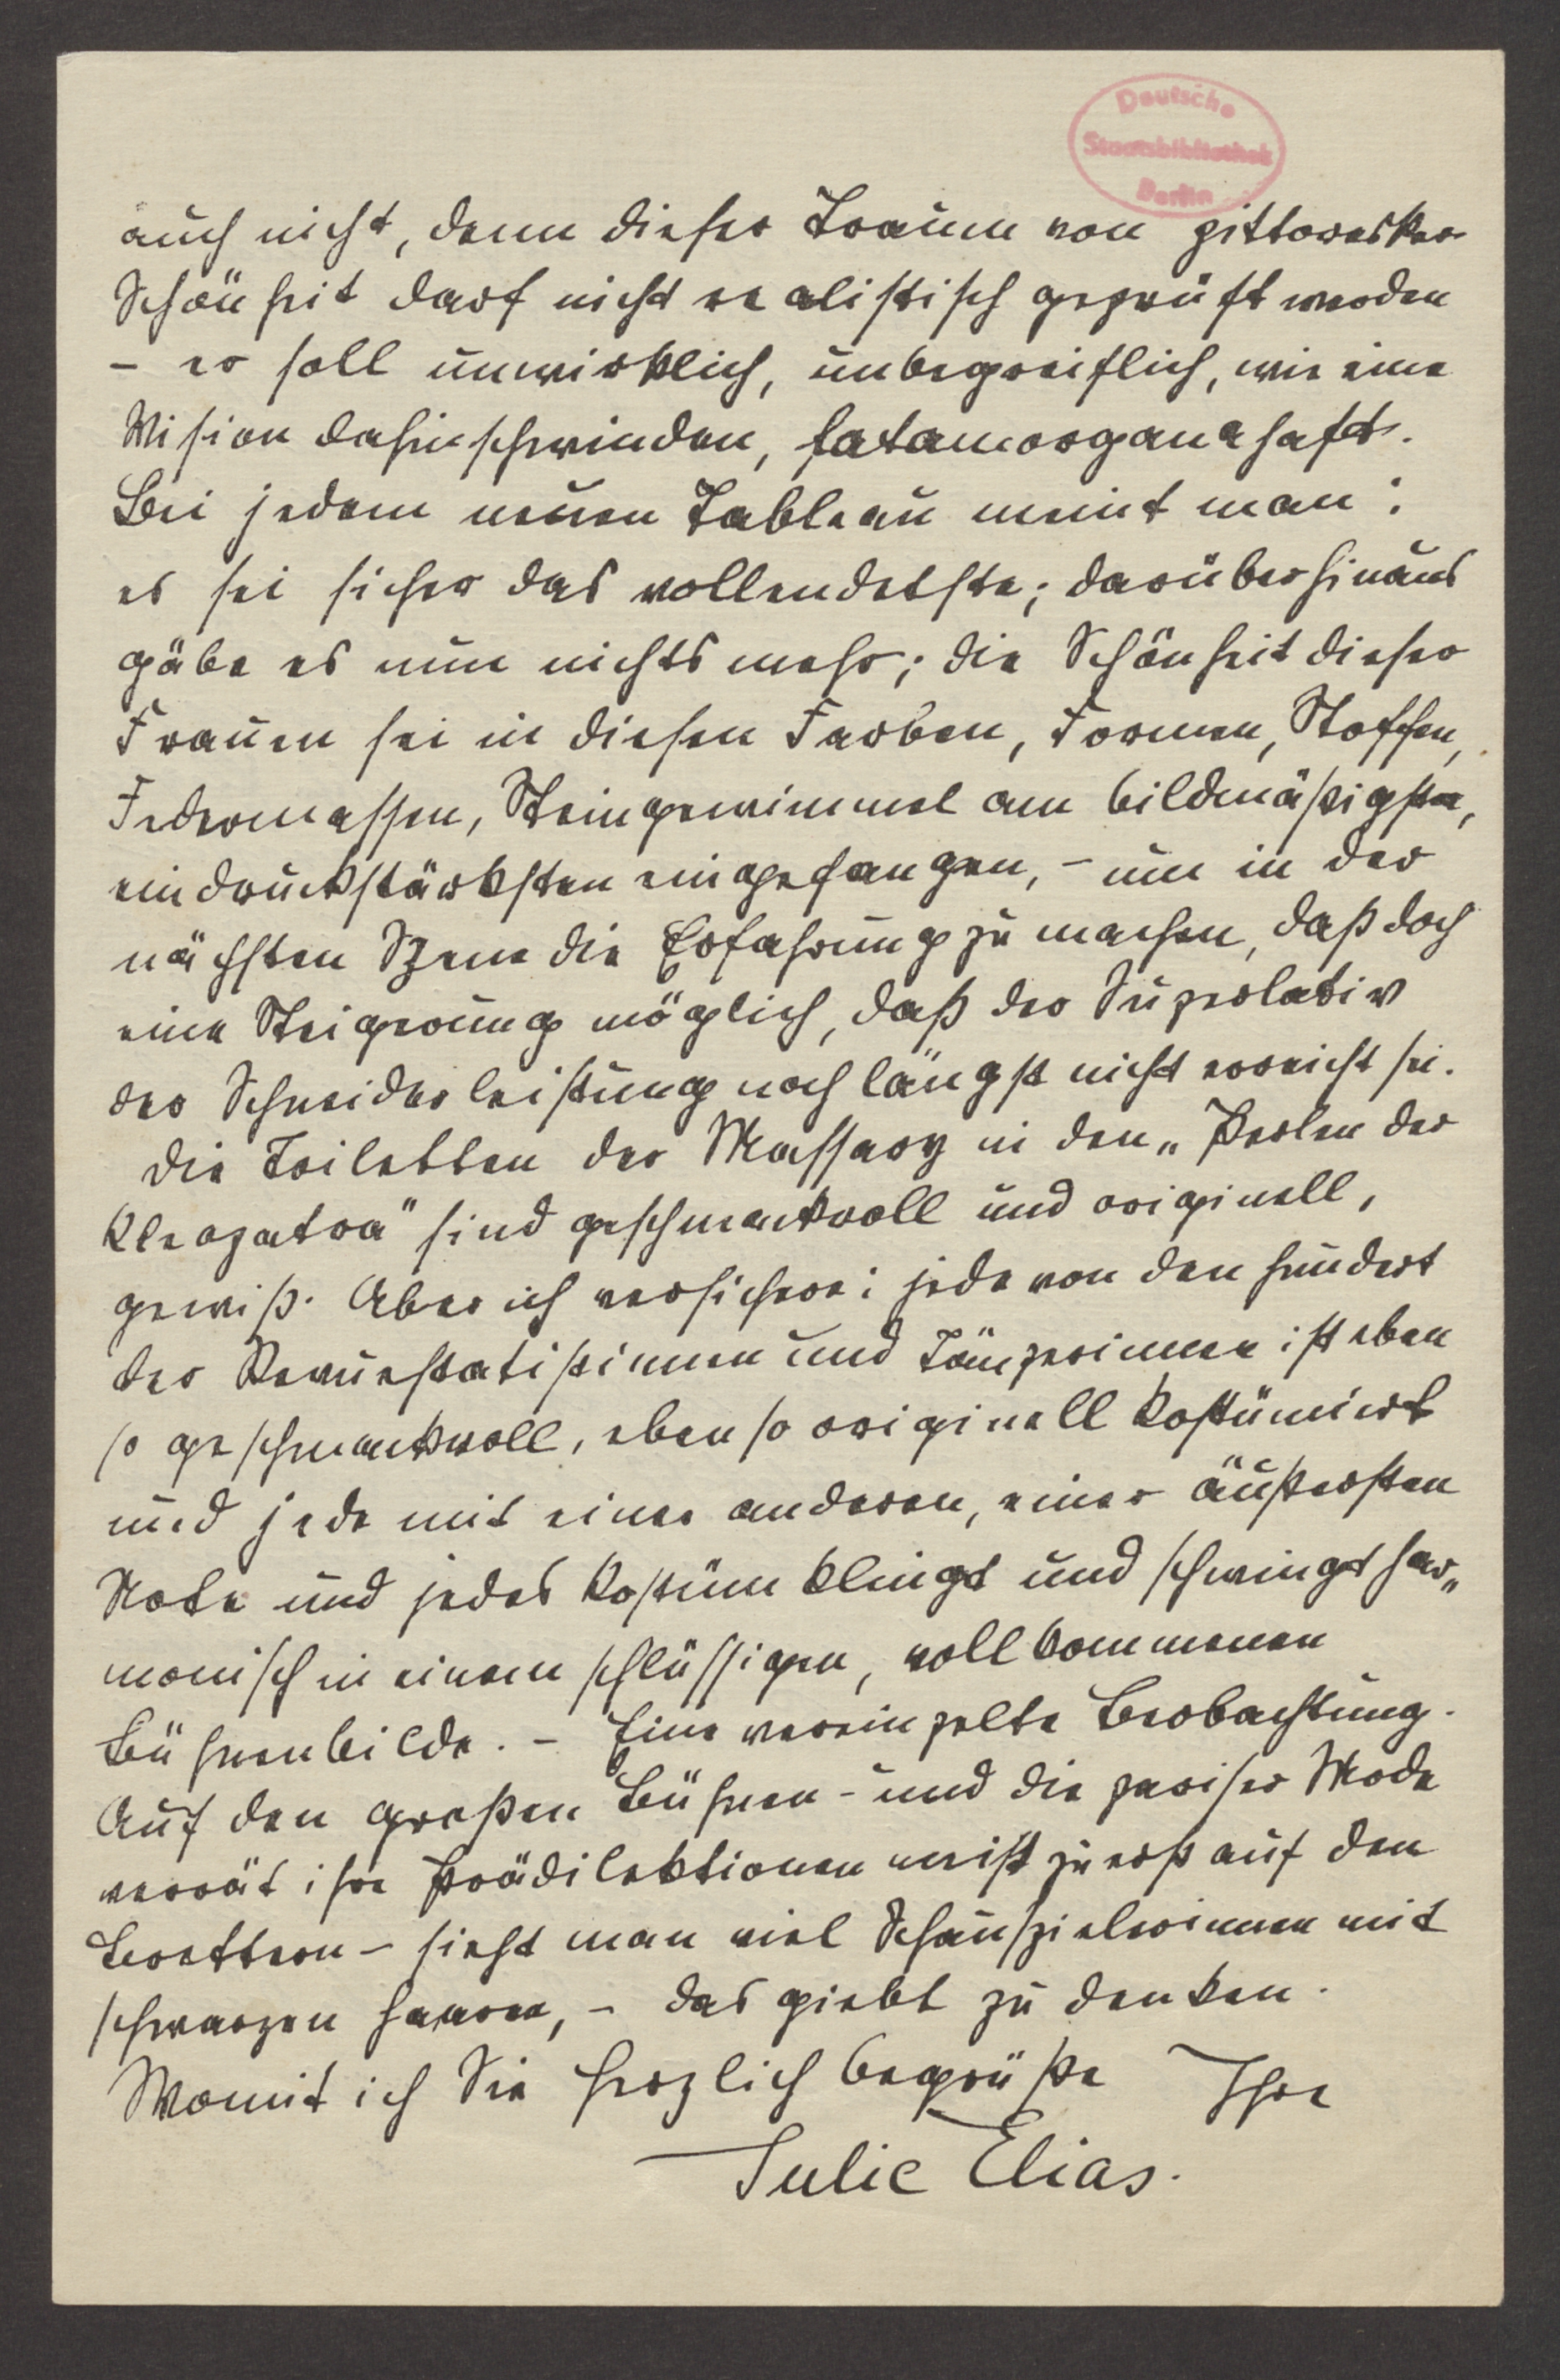 Deutsche
Staatsbibliothek
Berlin
auch nicht, denn dieser Traum von pittoresker
Schönheit darf nicht realistisch geprüft werden
– er soll unwirklich, unbegreiflich, wie eine
Vision dahinschwinden, fatamorganahaft.
Bei jedem neuen Tableau meint man:
es sei sicher das vollendetste; darüberhinaus
gäbe es nun nichts mehr; die Schönheit dieser
Frauen sei in diesen Farben, Formen, Stoffen,
Federmassen, Steingewimmel am bildmäßigsten,
eindruckstärksten eingefangen, – um in der
nächsten Szene die Erfahrung zu machen, daß doch
eine Steigerung möglich, daß der Superlativ
der Schneiderleistung noch längst nicht erreicht sei.
Die Toiletten der Massary in den „Perlen der
Kleopatra" sind geschmackvoll und originell,
gewiß. Aber ich versichere: jede von den hundert
der Revuestatistinnen und Tänzerinnen ist eben
so geschmackvoll, ebenso originell kostümiert
und jede mit einer anderen, einer äußersten
Note und jedes Kostüm klingt und schwingt har„
monisch in einem schlüssigen, vollkommenen
Bühnenbilde. – Eine vereinzelte Beobachtung.
Auf den großen Bühnen – und die pariser Mode
verrät ihre Prädilektionen meist zuerst auf den
Brettern – sieht man viel Schauspielerinnen mit
schwarzen Haaren, – das giebt zu denken.
Womit ich Sie herzlich begrüße Ihre
Julie Elias.